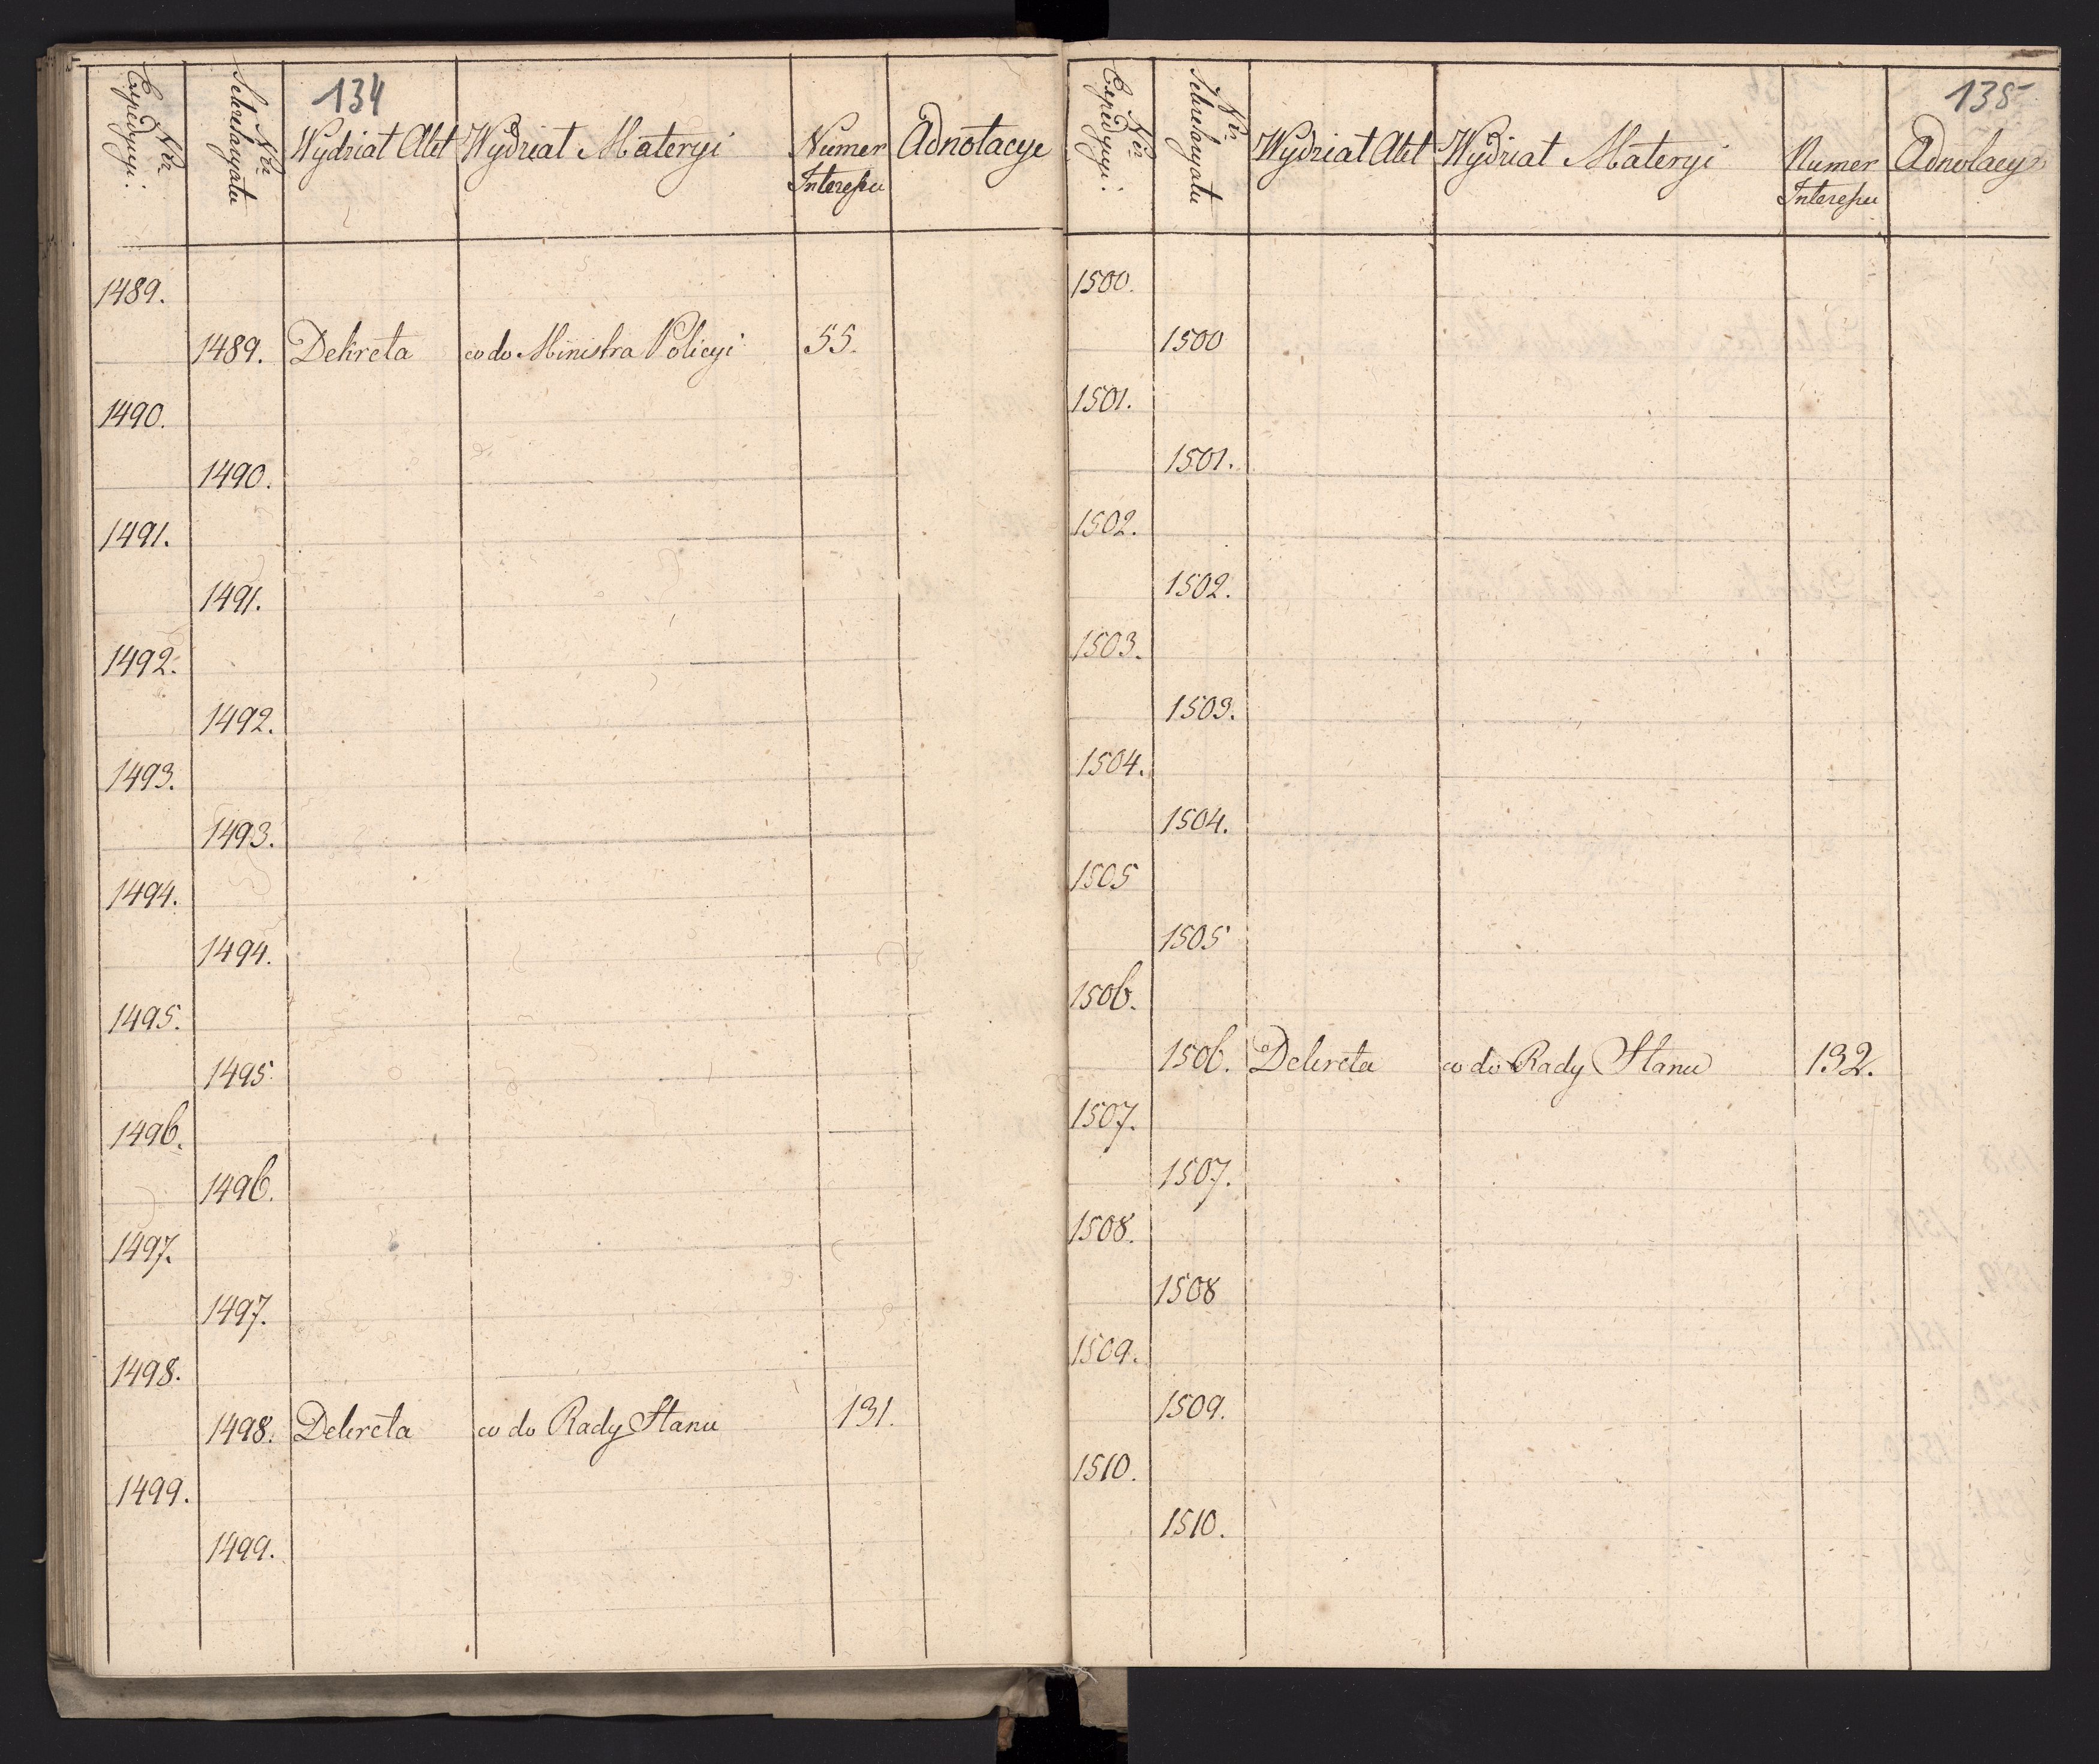 134
Nro Expedycyi:
Nro Sekretaryatu
Wydział Akt
Wydział Materyi
Numer Interessu
Adnotacye
1489.
1489. Dekreta co do Ministra Policyi 55.
1490.
1490.
1491.
1491.
1492.
1492.
1493.
1493.
1494.
1494.
1495.
1495
1496.
1496.
1497.
1497.
1498.
1498. Dekreta co do Rady Stanu 131.
1499.
1499.
135
Nro Expedycyi:
Nro Sekretaryatu
Wydział Akt
Wydział Materyi
Numer Interessu
Adnotacye
1500.
1500
1501.
1501.
1502.
1502.
1503.
1503.
1504.
1504.
1505
1505
1506.
1506. Dekreta co do Rady Stanu 132.
1507.
1507.
1508.
1508
1509.
1509.
1510.
1510.